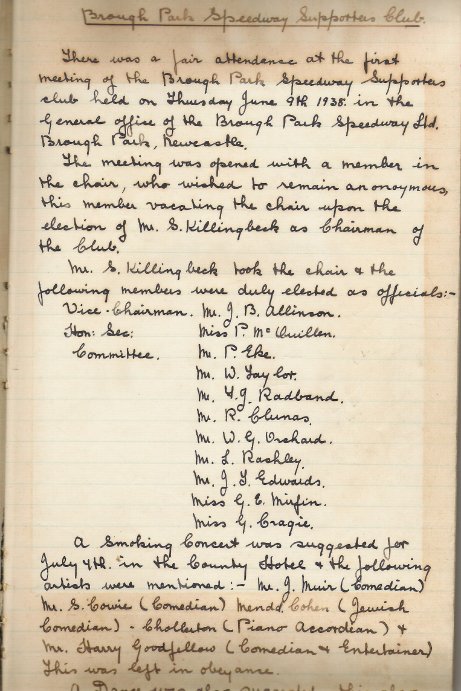 Brough Park Speedway Supporters Club.
There was a fair attendance at the first
meeting of the Brough Park Speedway Supporters
club held on Thursday June 9th 1938. in the
General office of the Brough Park Speedway Ltd.
Brough Park, Newcastle.
The meeting was opened with a member in
the chair, who wished to remain anonoymous,
this member vacating the chair upon the
election of Mr. S. Killingbeck as Chairman of
the Club.
Mr. S. Killingbeck took the chair & the
following members were duly elected as officials:-
Vice-Chairman. Mr. J. B. Allinson.
Hon: Sec: Miss P. McQuillen.
Committee. Mr. P. Eke.
Mr. W. Taylor.
Mr. Radband.
Mr. R. Clunas.
Mr. W. G. Orchard.
Mr. L. Rashley.
Mr. J. T. Edwards.
Miss G. E. Mirfin.
Miss G. Cragie.
A Smoking Concert was suggested for
July 4th. in the County Hotel & the following
artists were mentioned:- Mr. J. Muir (Comedian)
Mr. S. Cowie (Comedian) Cohen (Jewish
Comedian) - Chollerton (Piano Accordean) &
Mr. Harry Goodfellow (Comedian & Entertainer)
This was left in obeyance.
A was also